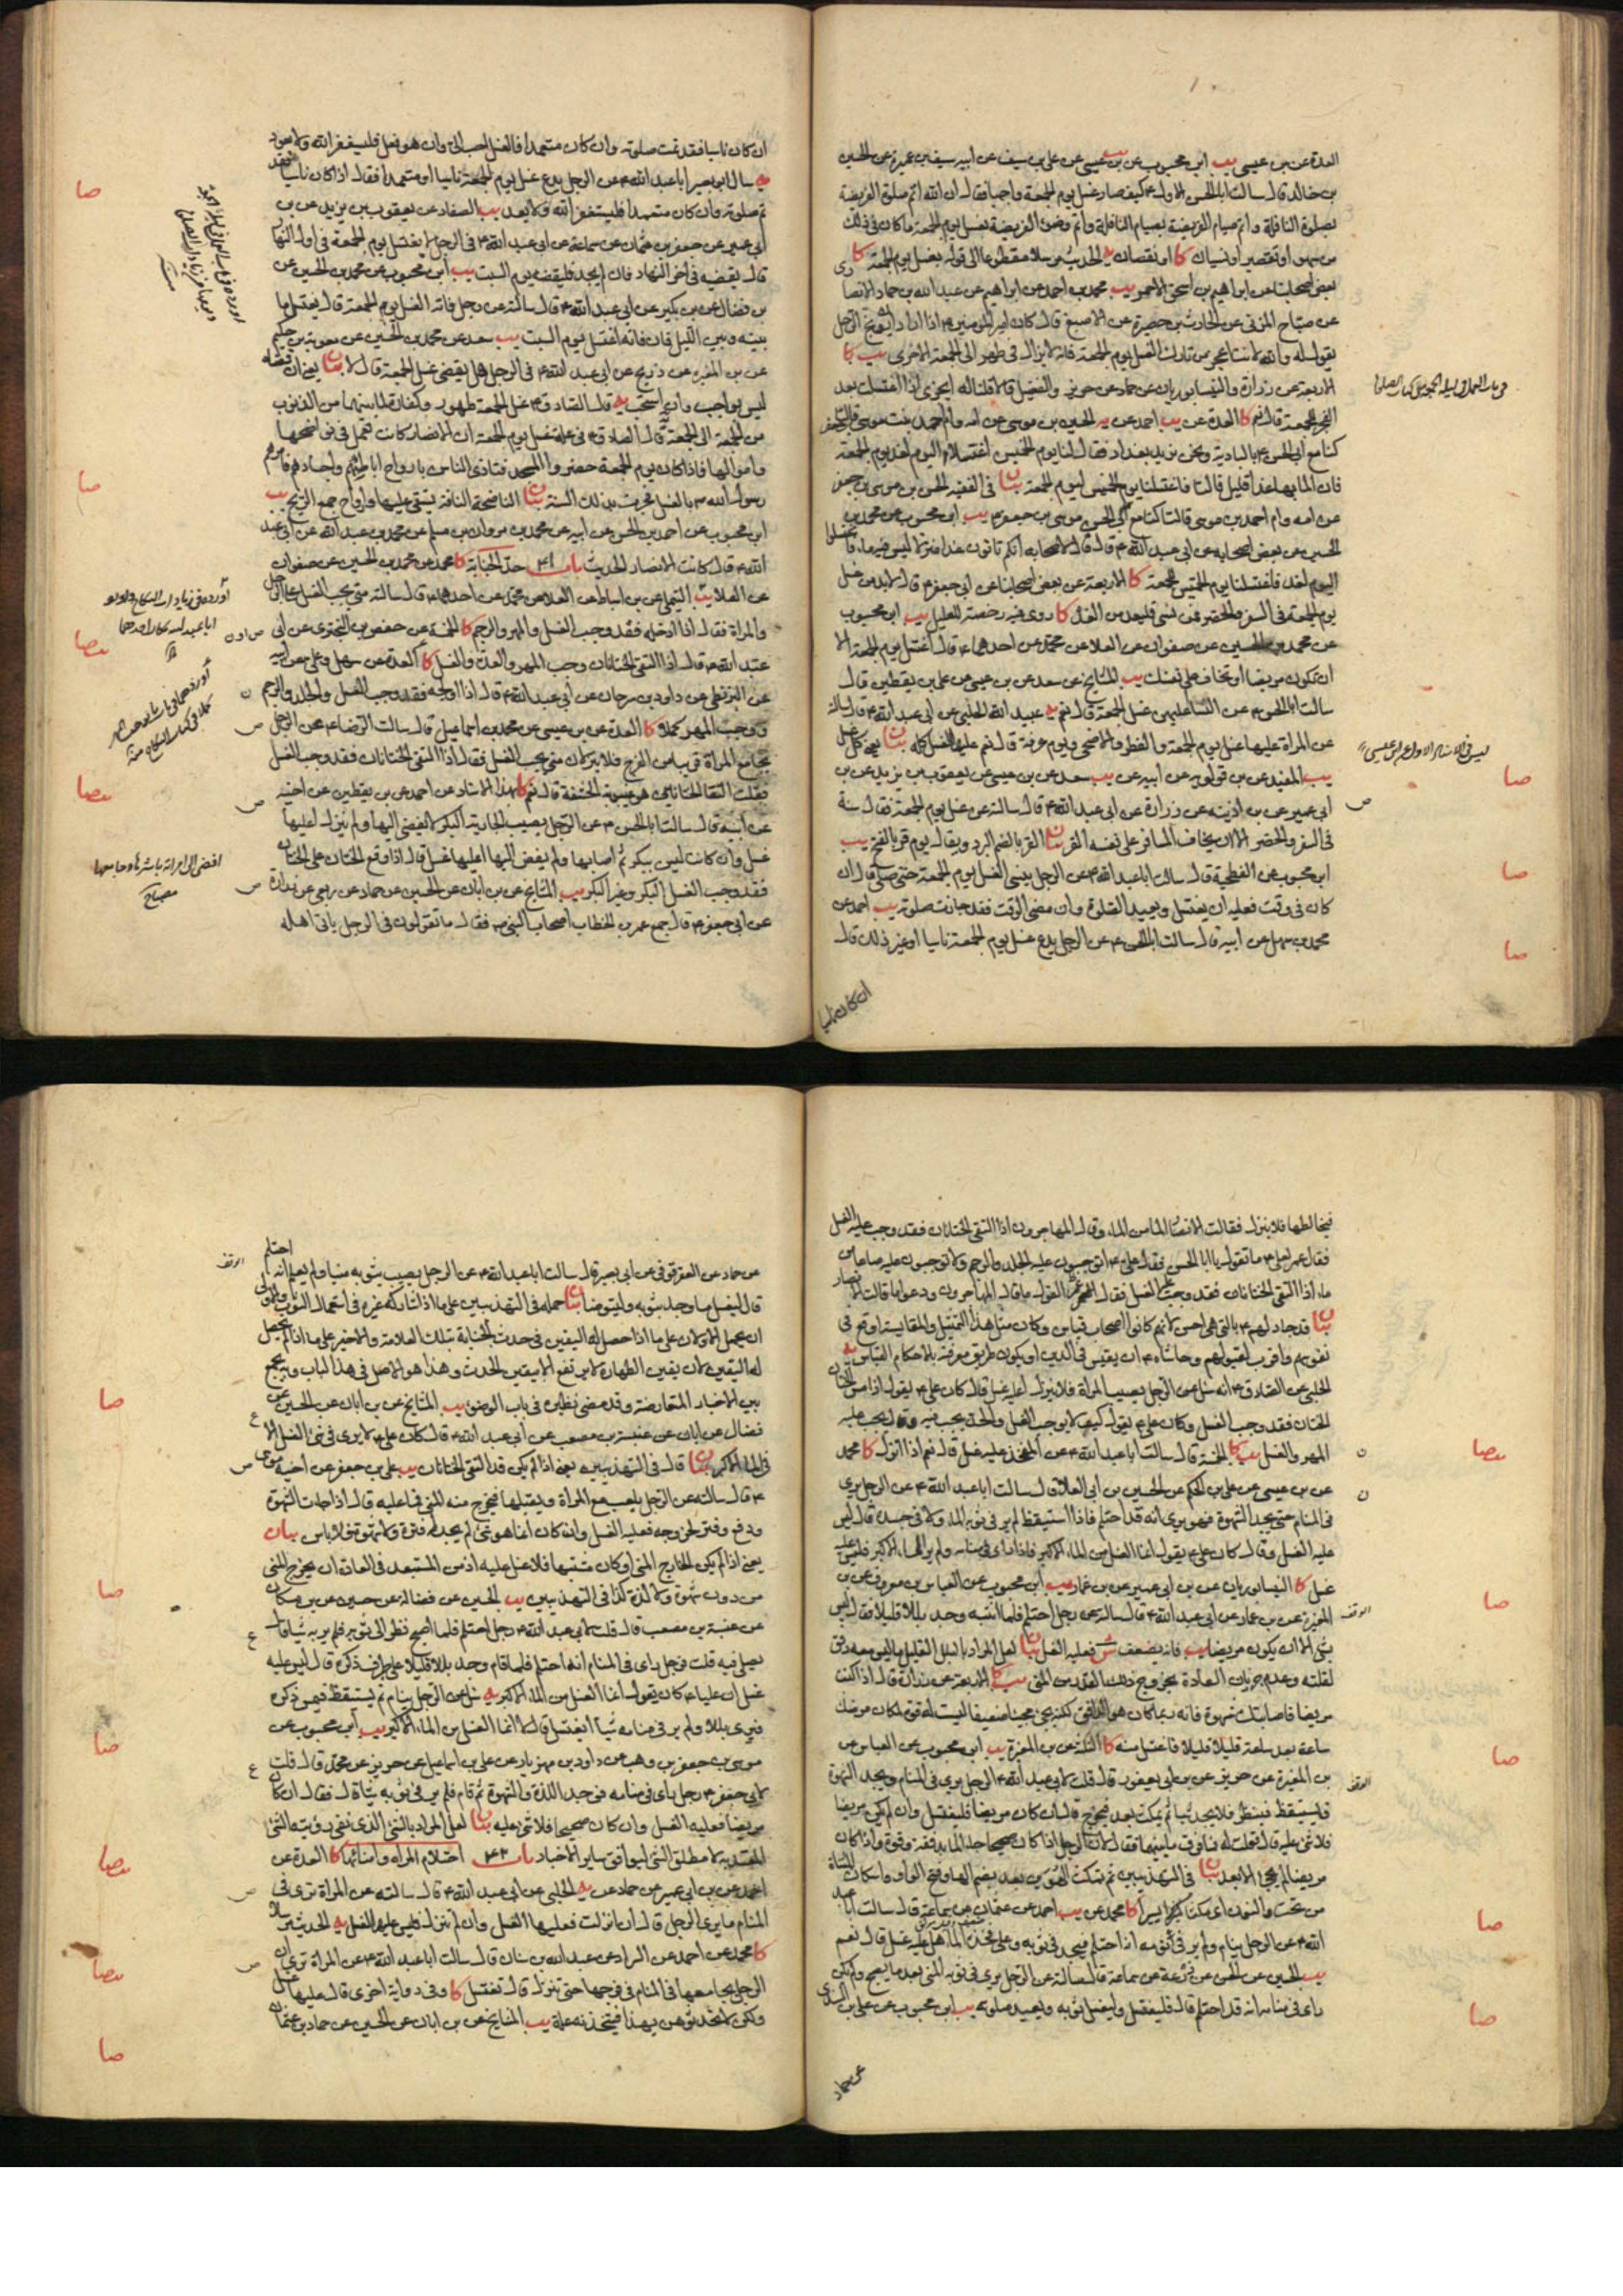 العدة عن بن عيسى يب ابن محبوب عن بن عيسى عن علي بن سيف عن ابيه سيف بن عميرة عن الحسين
بن خالد قال سالت ابا الحسن الاول ع كيف صار غسل يوم الجمعة واجبا فقال ان الله اتم صلوة الفريضة
بصلوة النافلة واتم صيام الفريضة بصيام النافلة واتم وضوء الفريضة بغسل يوم الجمعة ما كان في ذلك
من سهو او تقصير او نسيان كا او نقصان يه الحديث مرسلا مقطوعا الى قوله بغسل يوم الجمعة كا
بعض اصحابنا عن ابراهيم بن اسحق الاحمر يب محمد بن احمد عن ابراهيم عن عبد الله بن حماد الانصا
عن صباح المزني عن الحارث بن حصيرة عن الاصبغ قال كان امير المؤمنين ع اذا اراد ان يوبخ الرجل
يقول له والله لانت اعجز من تارك الغسل يوم الجمعة فانه لا يزال في طهر الى الجمعة الاخرى يب كا
الاربعة عن زرارة والنيسابوريان عن حماد عن حريز والفضيل قالا قلنا له ايجزي اذا اغتسلت بعد
الفجر للجمعة قال نعم كا العدة عن يب احمد عن يه الحسين بن موسى عن امه وام احمد بنت موسى قالتا
كنا مع ابي الحسن ع بالبادية ونحن نريد بغداد فقال لنا يوم الخميس اغتسلا اليوم لغد يوم الجمعة
فان الماء بها غدا قليل قالتا فاغتسلنا يوم الخميس ليوم الجمعة بيان في الفقيه الحسن بن موسى بن جعفر
عن امه وام احمد بن موسى قالتا كنا مع ابي الحسن موسى بن جعفر ع يب ابن محبوب عن محمد بن
الحسين عن بعض اصحابه عن ابي عبد الله ع قال قال لاصحابه انكم تاتون غدا منزلا ليس فيه ماء فاغتسلوا
اليوم لغد فاغتسلنا يوم الخميس للجمعة كا الاربعة عن بعض اصحابنا عن ابي جعفر ع قال لا بد من غسل
يوم الجمعة في السفر والحضر فمن نسي فليعد من الغد كا روى فيه رخصة للعليل يب ابن محبوب
عن محمد بن الحسين عن صفوان عن العلا عن محمد عن احدهما ع قال اغتسل يوم الجمعة الا
ان تكون مريضا او تخاف على نفسك يب المشايخ عن سعد عن بن عيسى عن علي بن يقطين قال
سالت ابا الحسن ع عن النساء اعليهن غسل الجمعة قال نعم يه عبيد الله الحلبي عن ابي عبد الله ع قال سالته
عن المراة عليها غسل يوم الجمعة والفطر والاضحى ويوم عرفة قال نعم عليها الغسل كله
يب المفيد عن بن قولويه عن ابيه عن يب سعد عن بن عيسى عن يعقوب بن يزيد عن بن
ابي عمير عن بن اذينه عن زرارة عن ابي عبد الله ع قال سالته عن غسل يوم الجمعة فقال سنة
في السفر والحضر الا ان يخاف المسافر على نفسه القر بيان القر بالضم البرد ويقال يوم قر بالفتح يب
ابن محبوب عن الفطحية قال سالت ابا عبد الله ع عن الرجل ينسى الغسل يوم الجمعة حتى صلى قال ان
كان في وقت فعليه ان يغتسل ويعيد الصلوة وان مضى الوقت فقد جازت صلوته يب احمد عن
محمد بن سهل عن ابيه قال سالت ابا الحسن ع عن الرجل يدع غسل يوم الجمعة ناسيا او غير ذلك قال
ان كان ناسيا
ان كان ناسيا فقد تمت صلوته وان كان متعمدا فالغسل احب الى وان هو فعل فليستغفر الله ولا يعود
يه سال ابو بصير ابا عبد الله ع عن الرجل يدع غسل يوم الجمعة ناسيا او متعمدا فقال اذا كان ناسيا فقد
تم صلوته وان كان متعمدا فليستغفر الله ولا يعد يب الصفار عن يعقوب بن يزيد عن بن
ابي عمير عن جعفر بن عثمان عن سماعة عن ابي عبد الله ع في الرجل لا يغتسل يوم الجمعة في اول النهار
قال يقضيه في اخر النهار فان لم يجد فليقضه يوم السبت يب ابن محبوب عن محمد بن الحسين عن
بن فضال عن بن بكير عن ابي عبد الله ع قال سالته عن رجل فاته الغسل يوم الجمعة قال يغتسل ما
بينه وبين الليل فان فاته اغتسل يوم السبت يب سعد عن محمد بن الحسين عن معوية بن حكيم
عن بن المغيرة عن ذريح عن ابي عبد الله ع في الرجل هل يقضي غسل الجمعة قال لا بيان يعني ان قضاه
ليس بواجب وان استحب يه قال الصادق ع غسل الجمعة طهور وكفارة لما بينهما من الذنوب
من الجمعة الى الجمعة يه قال الصادق ع في علة غسل يوم الجمعة ان الانصار كانت تعمل في نواضحها
واموالها فاذا كان يوم الجمعة حضروا المسجد فتاذى الناس بارواح اباطهم واجسادهم فامرهم
رسول الله ص بالغسل فجرت بذلك السنة بيان الناضحة الناقة يستقى عليها وارواح جمع الريح يب
ابن محبوب عن احمد بن الحسن عن ابيه عن محمد بن مروان بن مسلم عن محمد بن عبد الله عن ابي عبد
الله ع قال كانت الانصار الحديث باب ٤١ حد الجنابة كا محمد عن محمد بن الحسين عن صفوان
عن العلا يب التيملي عن بن اسباط عن العلا عن محمد عن احدهما ع قال سالته متى يجب الغسل على الرجل
والمراة فقال اذا ادخله فقد وجب الغسل والمهر والرجم كا الخمسة عن حفص بن البختري عن ابي
عبد الله ع قال اذا التقى الختانان وجب المهر والعدة والغسل كا العدة عن سهل وعلي عن ابيه
عن البزنطي عن داود بن سرحان عن ابي عبد الله ع قال اذا اولجه فقد وجب الغسل والجلد والرجم
ووجب المهر كملا كا العدة عن بن عيسى عن محمد بن اسماعيل قال سالت الرضا ع عن الرجل
يجامع المراة قريبا من الفرج فلا ينزلان متى يجب الغسل فقال اذا التقى الختانان فقد وجب الغسل
فقلت التقاء الختانين هو غيبوبة الحشفة قال نعم كا بهذا الاسناد عن احمد عن بن يقطين عن اخيه
عن ابيه قال سالت ابا الحسن ع عن الرجل يصيب الجارية البكر لا يفضي اليها ولم ينزل اعليها
غسل وان كانت ليس ببكر ثم اصابها ولم يفض اليها اعليها غسل قال اذا وقع الختان على الختان
فقد وجب الغسل البكر وغير البكر يب المشايخ عن بن ابان عن الحسين عن حماد عن ربعي عن زرارة
عن ابي جعفر ع قال جمع عمر بن الخطاب اصحاب النبي ص فقال ما تقولون في الرجل ياتي اهله
افضى الى امراته باشرها وجامعها
مصباح
فيخالطها فلا ينزل فقالت الانصار الماء من الماء وقال المهاجرون اذا التقى الختانان فقد وجب عليه الغسل
فقال عمر لعلي ع ما تقول يا ابا الحسن فقال علي ع اتوجبون عليه الجلد والرجم ولا توجبون عليه صاعا من
ماء اذا التقى الختانان فقد وجب عليه الغسل فقال عمر القول ما قال المهاجرون ودعوا ما قالت الانصار
بيان قد جادلهم ع بالتي هي احسن لانهم كانوا اصحاب قياس وكان مثل هذا التمثيل والمقايسة اوقع في
نفوسهم واقرب لقبولهم وحاشاه ع ان يقيس في الدين او يكون طريق معرفته بالاحكام القياس يه
الحلبي عن الصادق ع انه سئل عن الرجل يصيب المراة فلا ينزل اعليه غسل قال كان علي ع يقول اذا مس الختان
الختان فقد وجب الغسل وكان علي ع يقول كيف لا يوجب الغسل والحد يجب فيه وقال يجب عليه
المهر والغسل يب كا الخمسة قال سالت ابا عبد الله ع عن المفخذ عليه غسل قال نعم اذا انزل كا محمد
عن بن عيسى عن علي بن الحكم عن الحسين بن ابي العلا قال سالت ابا عبد الله ع عن الرجل يرى
في المنام حتى يجد الشهوة فهو يرى انه قد احتلم فاذا استيقظ لم ير في ثوبه الماء ولا في جسده قال ليس
عليه الغسل وقال كان علي ع يقول انما الغسل من الماء الاكبر فاذا راى في منامه ولم ير الماء الاكبر فليس عليه
غسل كا النيسابوريان عن بن ابي عمير عن بن عمار يب ابن محبوب عن العباس بن معروف عن بن
المغيرة عن بن عمار عن ابي عبد الله ع قال سالته عن رجل احتلم فلما انتبه وجد بللا قليلا فقال ليس
بشي الا ان يكون مريضا يب فانه يضعف ش فعليه الغسل بيان لعل المراد بالبلل القليل ما ليس معه دفق
لقلته وعدم جريان العادة بخروج ذلك القدر من المني يب كا الاربعة عن زرارة قال اذا كنت
مريضا فاصابتك شهوة فانه ربما كان هو الدافق لكنه يجيء مجيئا ضعيفا ليست له قوة لمكان مرضك
ساعة بعد ساعة قليلا قليلا فاغتسل منه كا الثلثة عن بن المغيرة يب ابن محبوب عن العباس عن
بن المغيرة عن حريز عن بن ابي يعفور قال قلت لابي عبد الله ع الرجل يرى في المنام ويجد الشهوة
فيستيقظ فينظر فلا يجد شيا ثم يمكث بعد فيخرج قال ان كان مريضا فليغتسل وان لم يكن مريضا
فلا شئ عليه قال قلت له فما فرق ما بينهما فقال لان الرجل اذا كان صحيحا جاء الماء بدفقة وقوة واذا كان
مريضا لم يجئ الا بعد بيان
الله ع عن الرجل ينام ولم ير في نومه انه احتلم فيجد في ثوبه وعلى فخذه الماء هل عليه غسل قال نعم
يب الحسين عن الحسن عن زرعة عن سماعة قال سالته عن الرجل يرى في ثوبه المني بعد ما يصبح ولم يكن
راى في منامه انه قد احتلم قال فليغتسل وليغسل ثوبه ويعيد صلوته يب ابن محبوب عن علي بن السندي
عن حماد
عن حماد عن العقرقوفي عن ابي بصير قال سالت ابا عبد الله ع عن الرجل يصيب بثوبه منيا ولم يعلم انه احتلم
قال ليغسل ما وجد بثوبه وليتوضا بيان حمله في التهذيبين على ما اذا شاركه غيره في استعمال الثوب
له اليقين لان يقين الطهارة لا يرتفع الا بيقين الحدث وهذا هو الاصل في هذا الباب وبه يجمع
بين الاخبار المتعارضة وقد مضى نظيره في باب الوضوء يب المشايخ عن بن ابان عن الحسين عن
فضال عن ابان عن عنبسة بن مصعب عن ابي عبد الله ع قال كان علي ع لا يرى في شئ الغسل الا
في الماء الاكبر بيان قال في التهذيبين يعني اذا لم يكن قد التقى الختانان يب علي بن جعفر عن اخيه موسى
ع قال سالته عن الرجل يلعب مع المراة ويقبلها فيخرج منه المني فما عليه قال اذا جاءت الشهوة
ودفع وفتر لخروجه فعليه الغسل وان كان انما هو شئ لم يجد له فترة ولا شهوة فلا باس بيان
يعني اذا لم يكن الخارج المني او كان مشتبها فلا غسل عليه اذ من المستبعد في العادة ان يخرج المني
من دون شهوة ولا لذة كذا في التهذيبين يب الحسين عن فضالة عن حسين عن بن مسكان
عن عنبسة بن مصعب قال قلت لابي عبد الله ع رجل احتلم فلما اصبح نظر الى ثوبه فلم ير به شيا قال
يصلي فيه قلت فرجل راى في المنام انه احتلم فلما قام وجد بللا قليلا على طرف ذكره قال ليس عليه
غسل ان عليا ع كان يقول انما الغسل من الماء الاكبر يه سئل عن الرجل ينام ثم يستيقظ فيمس ذكره
فيرى بللا ولم ير في منامه شيئا ايغتسل قال لا انما الغسل من الماء الاكبر يب ابن محبوب عن
موسى بن جعفر بن وهب عن داود بن مهزيار عن علي بن اسماعيل عن حريز عن محمد قال قلت
لابي جعفر ع رجل راى في منامه فوجد اللذة والشهوة ثم قام فلم ير في ثوبه شيئا قال فقال ان كان
مريضا فعليه الغسل وان كان صحيحا فلا شئ عليه بيان لعل المراد بالشئ الذي نفى رؤيته الشئ
المعتد به لا مطلق الشئ ليوافق ساير الاخبار باب ٤٢ احتلام المراة وامناؤها كا العدة عن
احمد عن بن ابي عمير عن حماد عن يه الحلبي عن ابي عبد الله ع قال سالته عن المراة ترى في
المنام ما يرى الرجل قال ان انزلت فعليها الغسل وان لم تنزل فليس عليها الغسل يه الحديث مرسلا
كا محمد عن احمد عن السراد عن عبد الله بن سنان قال سالت ابا عبد الله ع عن المراة ترى ان
الرجل يجامعها في المنام في فرجها حتى تنزل قال تغتسل كا وفي رواية اخرى قال عليها غسل
ولكن لا تحدثوهن بهذا فيتخذنه علة يب المشايخ عن بن ابان عن الحسين عن حماد بن عثمان